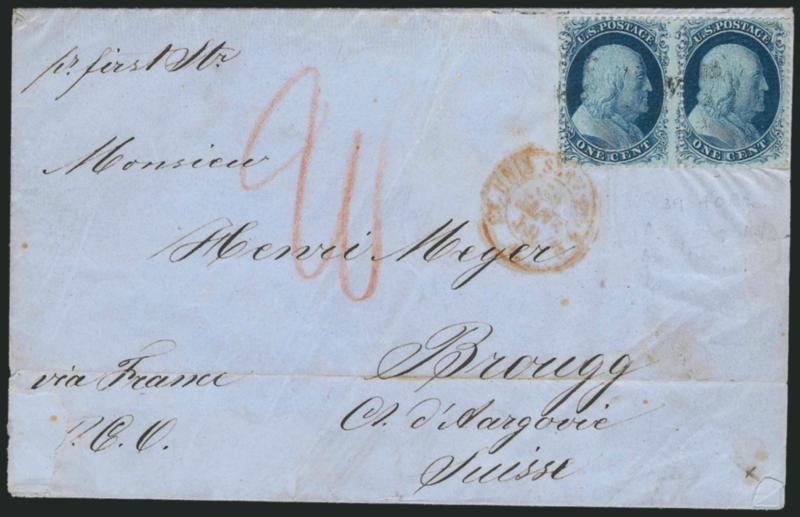 pr first Str
U.S. POSTAGE
ONE CENT
U.S. POSTAGE
ONE CENT
Monsieur
Henri Meyer
Brougg
via France
Ct. d'Aargovie
P.E.O.
Suisse